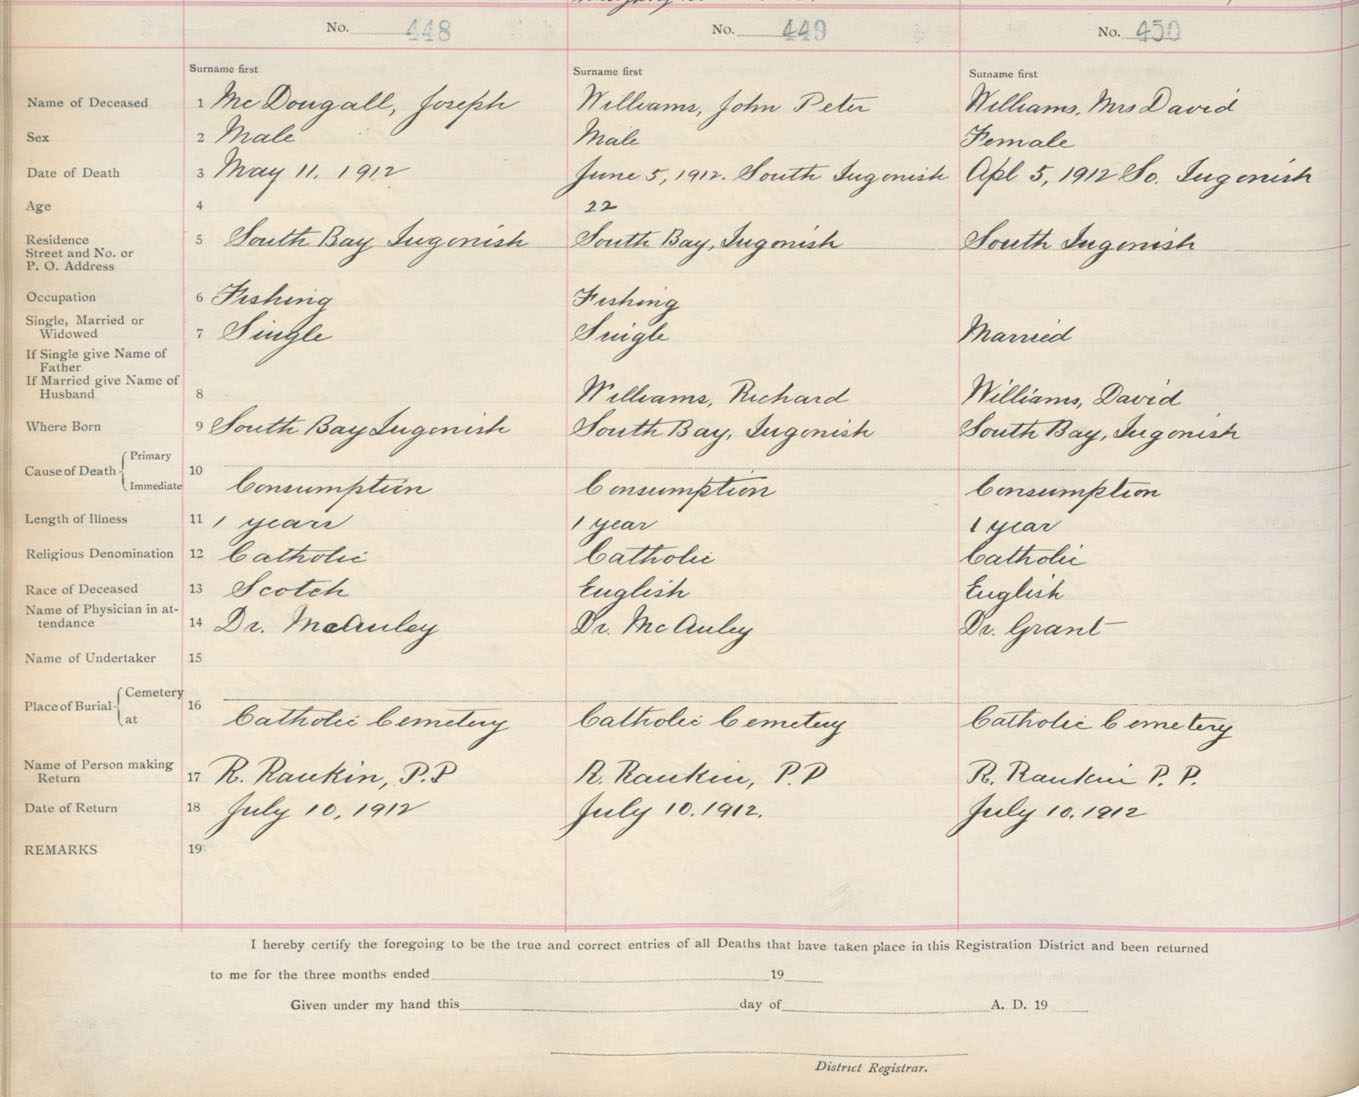 No. 448 No. 449 No. 450
Surname first Surname first Surname first
Name of Deceased 1 McDougall, Joseph Williams, John Peter Williams, Mrs David
Sex 2 Male Male Female
Date of Death 3 May 11. 1912 June 5, 1912. South Ingonish Apl 5, 1912 So. Ingonish
Age 4 22
Residence
Street and No. or 5 South Bay Ingonish South Bay, Ingonish South Ingonish
P. O. Address
Occupation 6 Fishing Fishing
Single, Married or
Widowed 7 Single Single Married
If Single give Name of
Father
If Married give Name of
Husband 8 Williams, Richard Williams, David
Where Born 9 South Bay Ingonish South Bay, Ingonish South Bay, Ingonish
Primary
Cause of Death 10
Immediate Consumption Consumption Consumption
Length of Illness 11 1 years 1 year 1 year
Religious Denomination 12 Catholic Catholic Catholic
Race of Deceased 13 Scotch English English
Name of Physician in at-
tendance 14 Dr. McAuley Dr. McAuley Dr. Grant
Name of Undertaker 15
Cemetery
Place of Burial 16
at Catholic Cemetery Catholic Cemetery Catholic Cemetery
Name of Person making
Return 17 R. Rankin, P.P R. Rankin, P.P R. Rankin P. P.
Date of Return 18 July 10, 1912 July 10. 1912. July 10. 1912
REMARKS 19
I hereby certify the foregoing to be the true and correct entries of all Deaths that have taken place in this Registration District and been returned
to me for the three months ended 19
Given under my hand this day of A. D. 19
District Registrar.